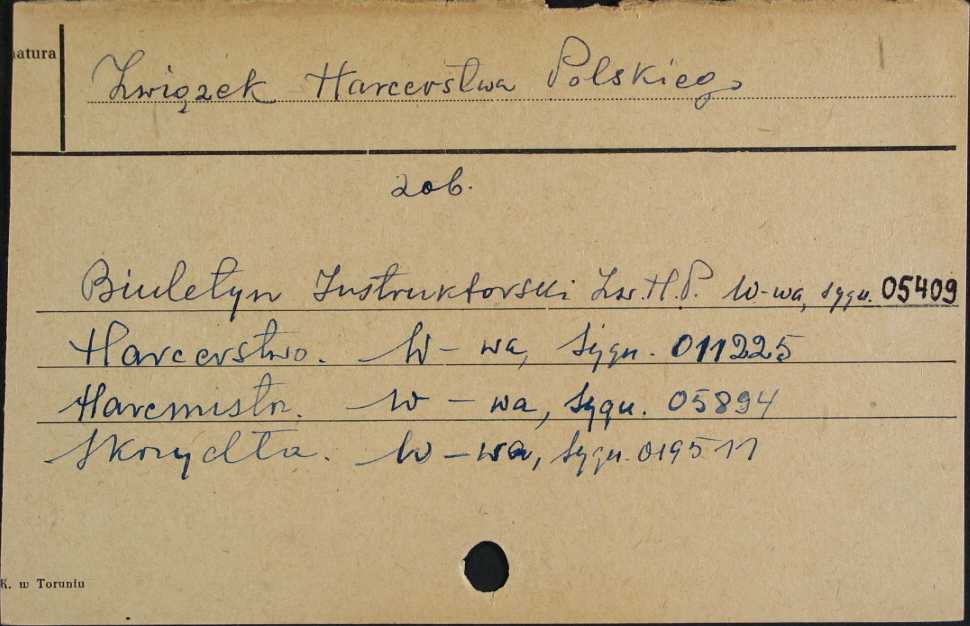 atura
Związek Harcerstwa Polskiego
zob.
Biuletyn Instruktorski Zw. H. P. W-wa, sygn. 05409
Harcerstwo. W-wa, sygn. 011225
Harcmistrz. W-wa, sygn. 05894
Skrzydła. W-wa, sygn. 019511
K. w Toruniu